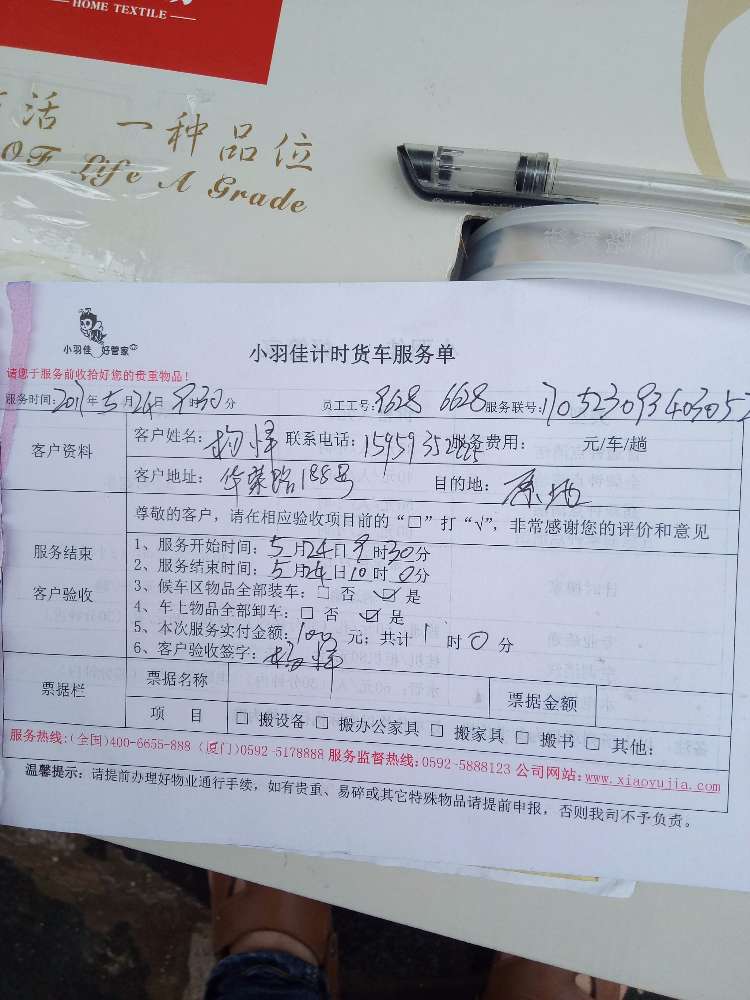 HOME TEXTILE
活 一种品位
OF Life A Grade
小羽佳 好管家
小羽佳计时货车服务单
请您于服务前收拾好您的贵重物品！
服务时间：2017年5月24日 9时30分 员工工号：8628 6628 服务联号：
客户资料
客户姓名： 联系电话： 服务费用： 元/车/趟
客户地址：华荣路188号 目的地：原地
尊敬的客户，请在相应验收项目前的“□”打“√”，非常感谢您的评价和意见
服务结束
客户验收
1、服务开始时间：5月24日9时30分
2、服务结束时间：5月24日10时0分
3、候车区物品全部装车：□ 否 ☑ 是
4、车上物品全部卸车：□ 否 ☑ 是
5、本次服务实付金额：100元；共计1时0分
6、客户验收签字：
票据栏
票据名称 票据金额
项 目 □ 搬设备 □ 搬办公家具 □ 搬家具 □ 搬书 □ 其他：
服务热线：(全国)400-6655-888 (厦门)0592-5178888 服务监督热线：0592-5888123 公司网站：www.xiaoyujia.com
温馨提示：请提前办理好物业通行手续，如有贵重、易碎或其它特殊物品请提前申报，否则我司不予负责。